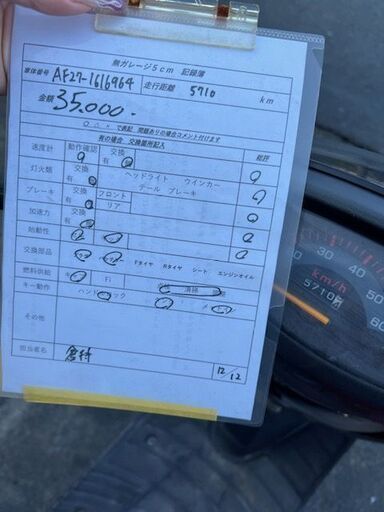 無ガレージ5cm 記録簿
車体番号 AF27-1616964 走行距離 5710 km
金額 35,000.-
○ △ × で表記 問題ありの場合コメント付けます
有の場合 交換箇所記入
速度計 動作確認 交換 有 総評
灯火類 交換 有 ヘッドライト ウインカー テール ブレーキ
ブレーキ 交換 有 フロント リア
加速力 交換 有
始動性
交換部品 Fタイヤ Rタイヤ シート エンジンオイル
燃料供給 キャブ Fi 清掃
キー動作 ハンドルロック
その他
担当者名 倉持 12/12
km/h
5710
20
30
40
50
60